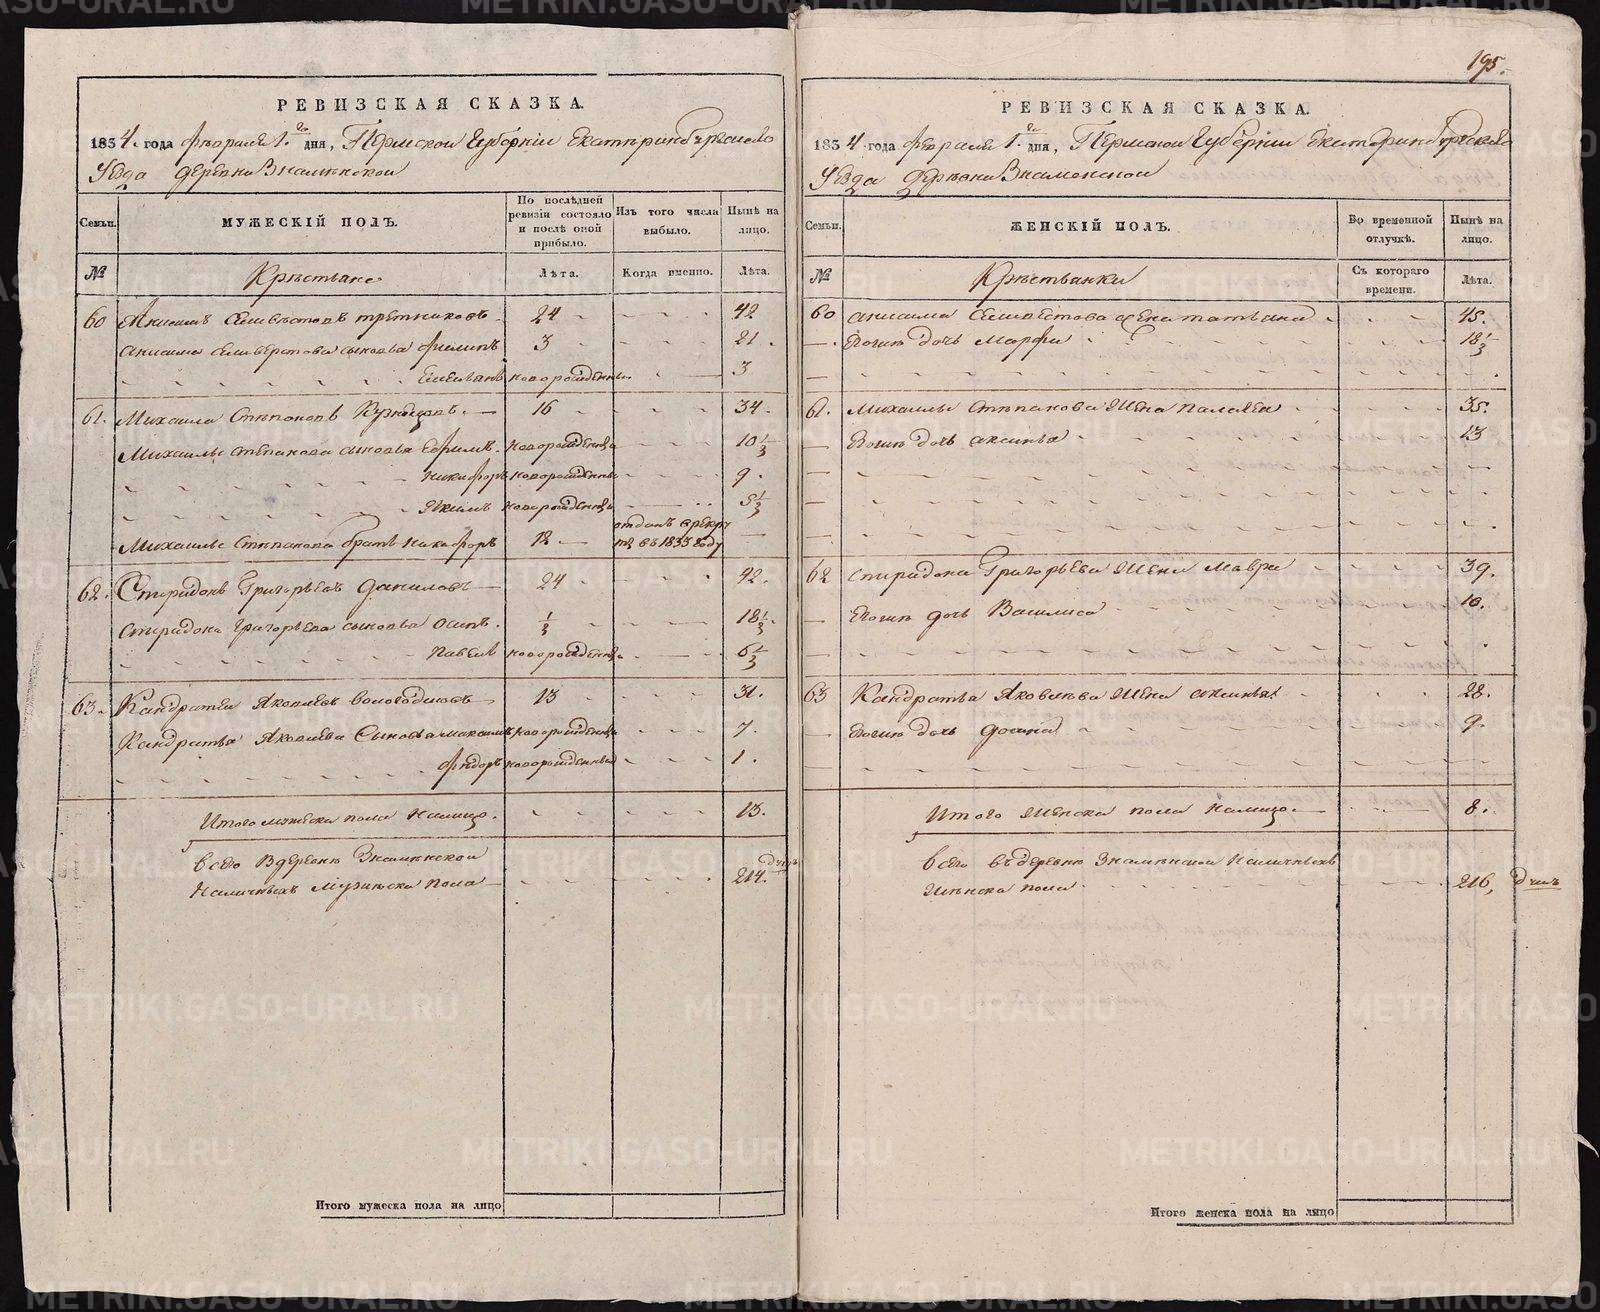 РЕВИЗСКАЯ СКАЗКА.
1854. года февраля 1го дня, Пермской Губернии Екатеринбургскаго
Уезда деревни Знаменской
Семьи.
МУЖЕСКІЙ ПОЛЪ.
По послѣдней ревизіи состояло и послѣ оной прибыло.
Изъ того числа выбыло.
Нынѣ на лицо.
№
Крестьяне
Лѣта.
Когда именно.
Лѣта.
60 Анисимъ Селиверстовъ Третниковъ 24 42
Анисима Селиверстова сыновья Филипъ 3 21.
Емельянъ новорожденны 3
61. Михаила Степановъ Кузнецовъ. 16 34.
Михаилы Степанова сыновья Ефимъ. новорожденны 10 1/3
Никифоръ новорожденны 9.
Якимъ новорожденны 5 1/3
Михаилы Степанова братъ Никифоръ 12 отданъ врекру
ты въ 1835 году
62. Спиридонъ Григорьевъ Даниловъ 24 42.
Спиридона Григорьева сыновья Осипъ. 1/3 18 1/3.
Павелъ новорожденны 6 1/3
63. Кандратей Яковлевъ Вологодцовъ 13 31.
Кандратья Яковлева Сыновья Максимъ новорожденны 7.
Федоръ новорожденны 1.
Итого мужеска пола налицо. 13.
Всего вдеревне Знаменской
Наличныхъ Мужеска пола 214. душъ
Итого мужеска пола на лицо
195.
РЕВИЗСКАЯ СКАЗКА.
1854 года февраля 1го дня, Пермской Губернии Екатеринбургскаго
Уезда деревни Знаменской
Семьи.
ЖЕНСКІЙ ПОЛЪ.
Во временной отлучкѣ.
Нынѣ на лицо.
№
Крестьянки
Съ котораго времени.
Лѣта.
60 Анисима Селиверстова жена Татьяна 45.
Егоже дочь Марфа 18 1/3
61. Михаилы Степанова Жена Палагея 35.
Егоже дочь Аксинья 13
62 Спиридона Григорьева Жена Мавра 39.
Егоже дочь Василиса 10.
63 Кандратья Яковлева Жена Аксинья 28.
Егоже дочь 9.
Итого Женска пола налицо. 8.
Всего въ деревне Знаменской Наличныхъ
Женска пола 216, душъ
Итого женска пола на лицо
METRIKI.GASO-URAL.RU